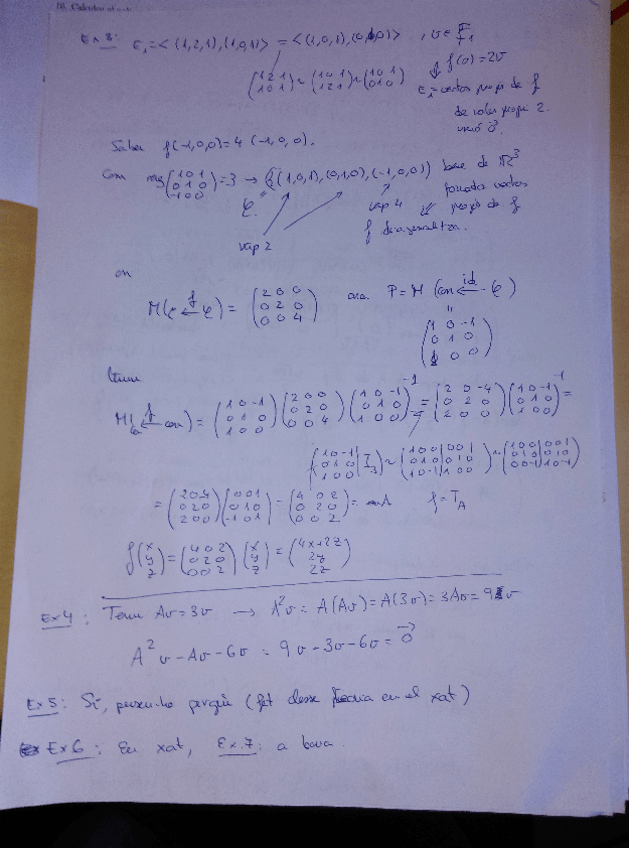 Ex 3: E₁ = <(1,2,1),(1,0,1)> = <(1,0,1),(0,1,0)>, v ∈ F₁
(1 2 1 / 1 0 1) ~ (1 0 1 / 1 2 1) ~ (1 0 1 / 0 1 0)
f(v) = 2v
vectors propis de f
de valor propi 2.
f(-1,0,0) = 4(-1,0,0).
Com rang (1 0 1 / 0 1 0 / -1 0 0) = 3 → ((1,0,1),(0,1,0),(-1,0,0)) base de ℝ³
formada vectors
propis de f
vap 4
f diagonalitza.
vap 2
on
M(φ ←f φ) = (2 0 0 / 0 2 0 / 0 0 4) ara P = M(can ←id φ)
"
(1 0 -1 / 0 1 0 / 1 0 0)
tenim
M(can ←f can) = (1 0 -1 / 0 1 0 / 1 0 0)(2 0 0 / 0 2 0 / 0 0 4)(1 0 -1 / 0 1 0 / 1 0 0)⁻¹ = (2 0 -4 / 0 2 0 / 2 0 0)(1 0 -1 / 0 1 0 / 1 0 0)⁻¹ =
(1 0 -1 / 0 1 0 / 1 0 0 | I₃) ~ (1 0 0 | 0 0 1 / 0 1 0 | 0 1 0 / 1 0 -1 | 1 0 0) ~ (1 0 0 | 0 0 1 / 0 1 0 | 0 1 0 / 0 0 -1 | 1 0 -1)
= (2 0 -4 / 0 2 0 / 2 0 0)(0 0 1 / 0 1 0 / -1 0 1) = (4 0 2 / 0 2 0 / 0 0 2) = A f = T_A
f(x / y / z) = (4 0 2 / 0 2 0 / 0 0 2)(x / y / z) = (4x+2z / 2y / 2z)
Ex 4: Tenim Av = 3v → A²v = A(Av) = A(3v) = 3Av = 9v
A²v - Av - 6v = 9v - 3v - 6v = 0
Ex 5: Sí, perquè (fet classe en el xat)
Ex 6: En xat, Ex. 7: a baix.